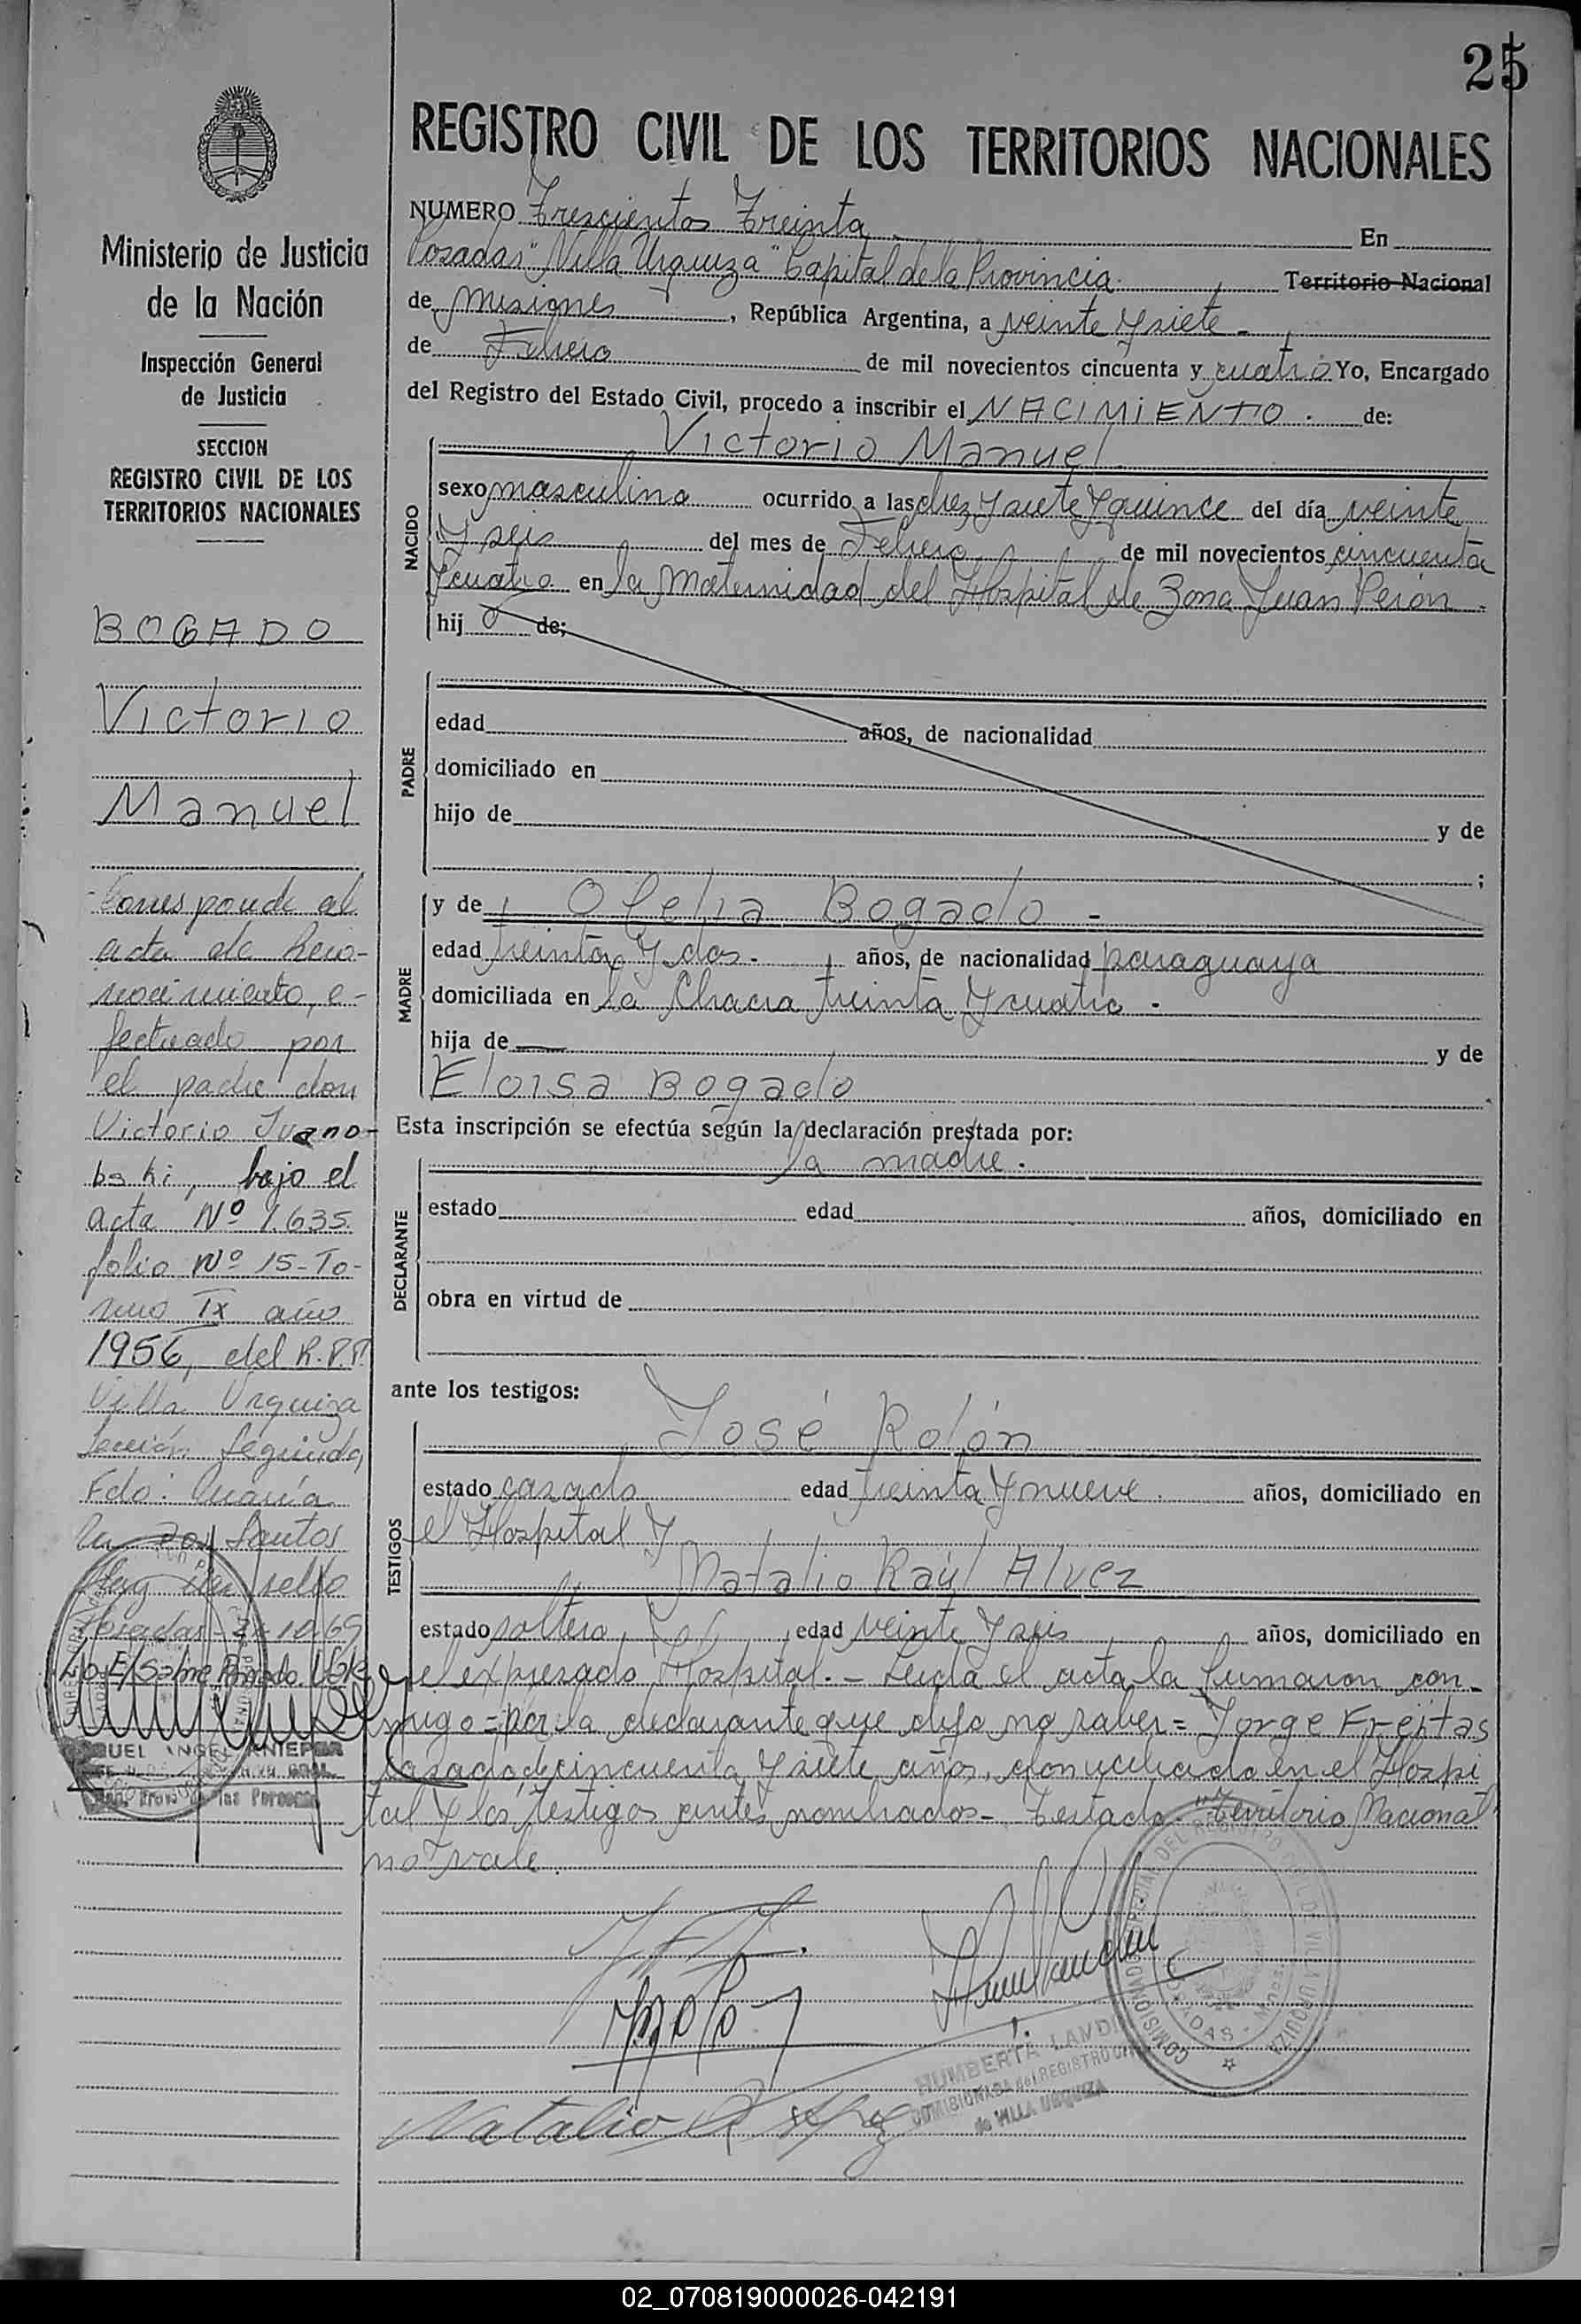 25
REGISTRO CIVIL DE LOS TERRITORIOS NACIONALES
Ministerio de Justicia
de la Nación
Inspección General
de Justicia
SECCION
REGISTRO CIVIL DE LOS
TERRITORIOS NACIONALES
BOGADO
Victorio
Manuel
Corresponde al
acta de Reco-
nocimiento, e-
fectuado por
el padre don
Victorio Ivano-
bski, bajo el
acta Nº 1.635
folio Nº 15-To-
mo IX año
1956, del R.P.P.
Villa Urquiza
Sección Segunda,
Fdo: María
Santos
Hay un sello
Posadas 10-69
NUMERO Trescientos Treinta En
Posadas "Villa Urquiza" Capital de la Provincia. Territorio Nacional
de Misiones, República Argentina, a veinte y siete
de Febrero de mil novecientos cincuenta y cuatro Yo, Encargado
del Registro del Estado Civil, procedo a inscribir el NACIMIENTO. de:
NACIDO
Victorio Manuel
sexo masculino ocurrido a las diez y siete y quince del día veinte
y seis del mes de Febrero de mil novecientos cincuenta
y cuatro en la Maternidad del Hospital de Zona Juan Perón.
hijo de;
PADRE
edad años, de nacionalidad
domiciliado en
hijo de y de
;
MADRE
y de Ofelia Bogado -
edad treinta y dos. años, de nacionalidad paraguaya
domiciliada en la Chacra treinta y cuatro -
hija de — y de
Eloisa Bogado
Esta inscripción se efectúa según la declaración prestada por:
la madre.
DECLARANTE
estado edad años, domiciliado en
obra en virtud de
ante los testigos:
TESTIGOS
José Rolón
estado casado edad treinta y nueve. años, domiciliado en
el Hospital y
Natalio Raúl Alvez
estado soltero, edad veinte y seis años, domiciliado en
el expresado Hospital. - Leida el acta la firmaron con-
migo = por la declarante que dijo no saber = Jorge Freitas
casado, de cincuenta y siete años, domiciliado en el Hospi
tal y los testigos antes nombrados - Testado: "Territorio Nacional"
no vale.
COMISIONADO ESPECIAL DEL REGISTRO CIVIL DE VILLA URQUIZA
POSADAS - Mnes.
HUMBERTA LANDI
COMISIONADA del REGISTRO CIVIL
de VILLA URQUIZA
Natalio R
02_070819000026-042191